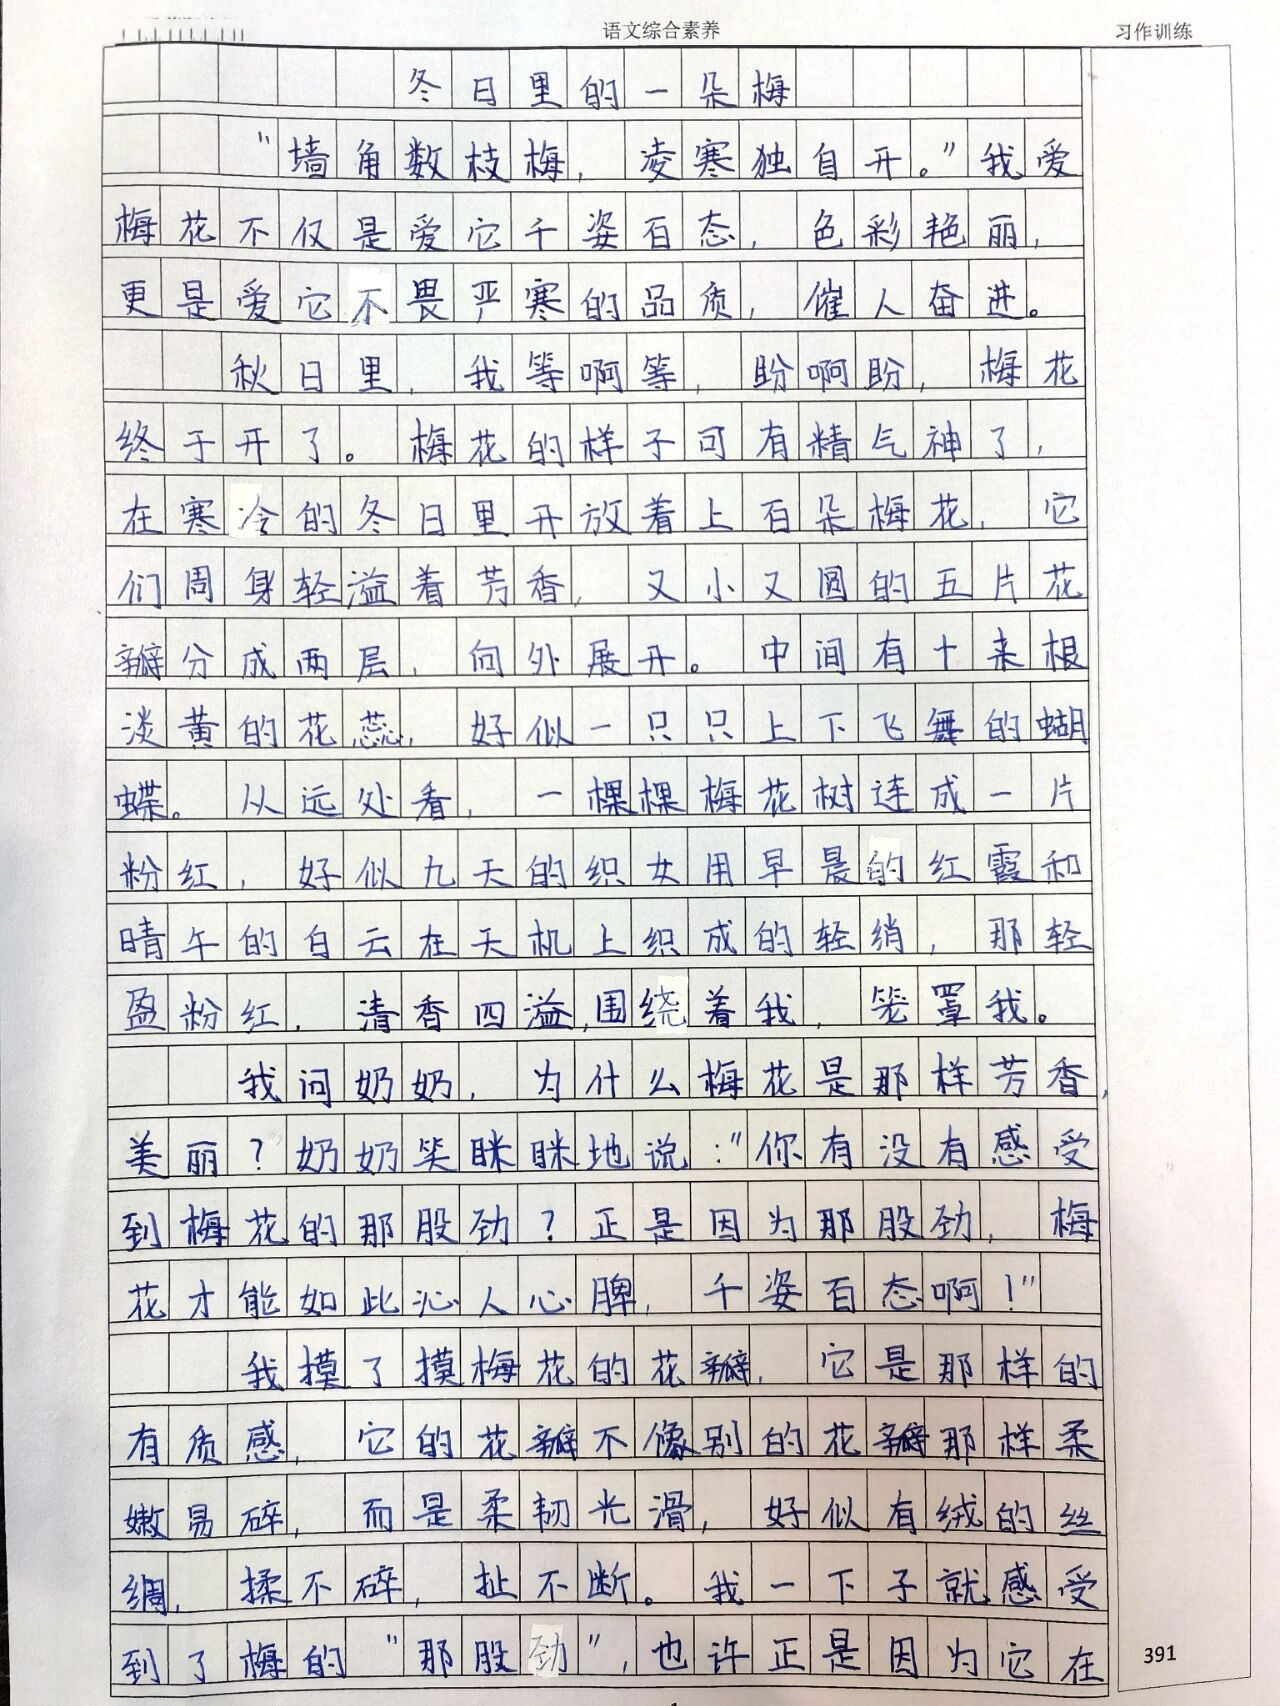 语文综合素养
习作训练
冬日里的一朵梅
“墙角数枝梅，凌寒独自开。”我爱
梅花不仅是爱它千姿百态，色彩艳丽，
更是爱它不畏严寒的品质，催人奋进。
秋日里，我等啊等，盼啊盼，梅花
终于开了。梅花的样子可有精气神了，
在寒冷的冬日里开放着上百朵梅花，它
们周身轻溢着芳香，又小又圆的五片花
瓣分成两层，向外展开。中间有十来根
淡黄的花蕊，好似一只只上下飞舞的蝴
蝶。从远处看，一棵棵梅花树连成一片
粉红，好似九天的织女用早晨的红霞和
晴午的白云在天机上织成的轻绡，那轻
盈粉红，清香四溢，围绕着我，笼罩我。
我问奶奶，为什么梅花是那样芳香，
美丽？奶奶笑眯眯地说：“你有没有感受
到梅花的那股劲？正是因为那股劲，梅
花才能如此沁人心脾，千姿百态啊！”
我摸了摸梅花的花瓣，它是那样的
有质感，它的花瓣不像别的花瓣那样柔
嫩易碎，而是柔韧光滑，好似有绒的丝
绸，揉不碎，扯不断。我一下子就感受
到了梅的“那股劲”，也许正是因为它在
391